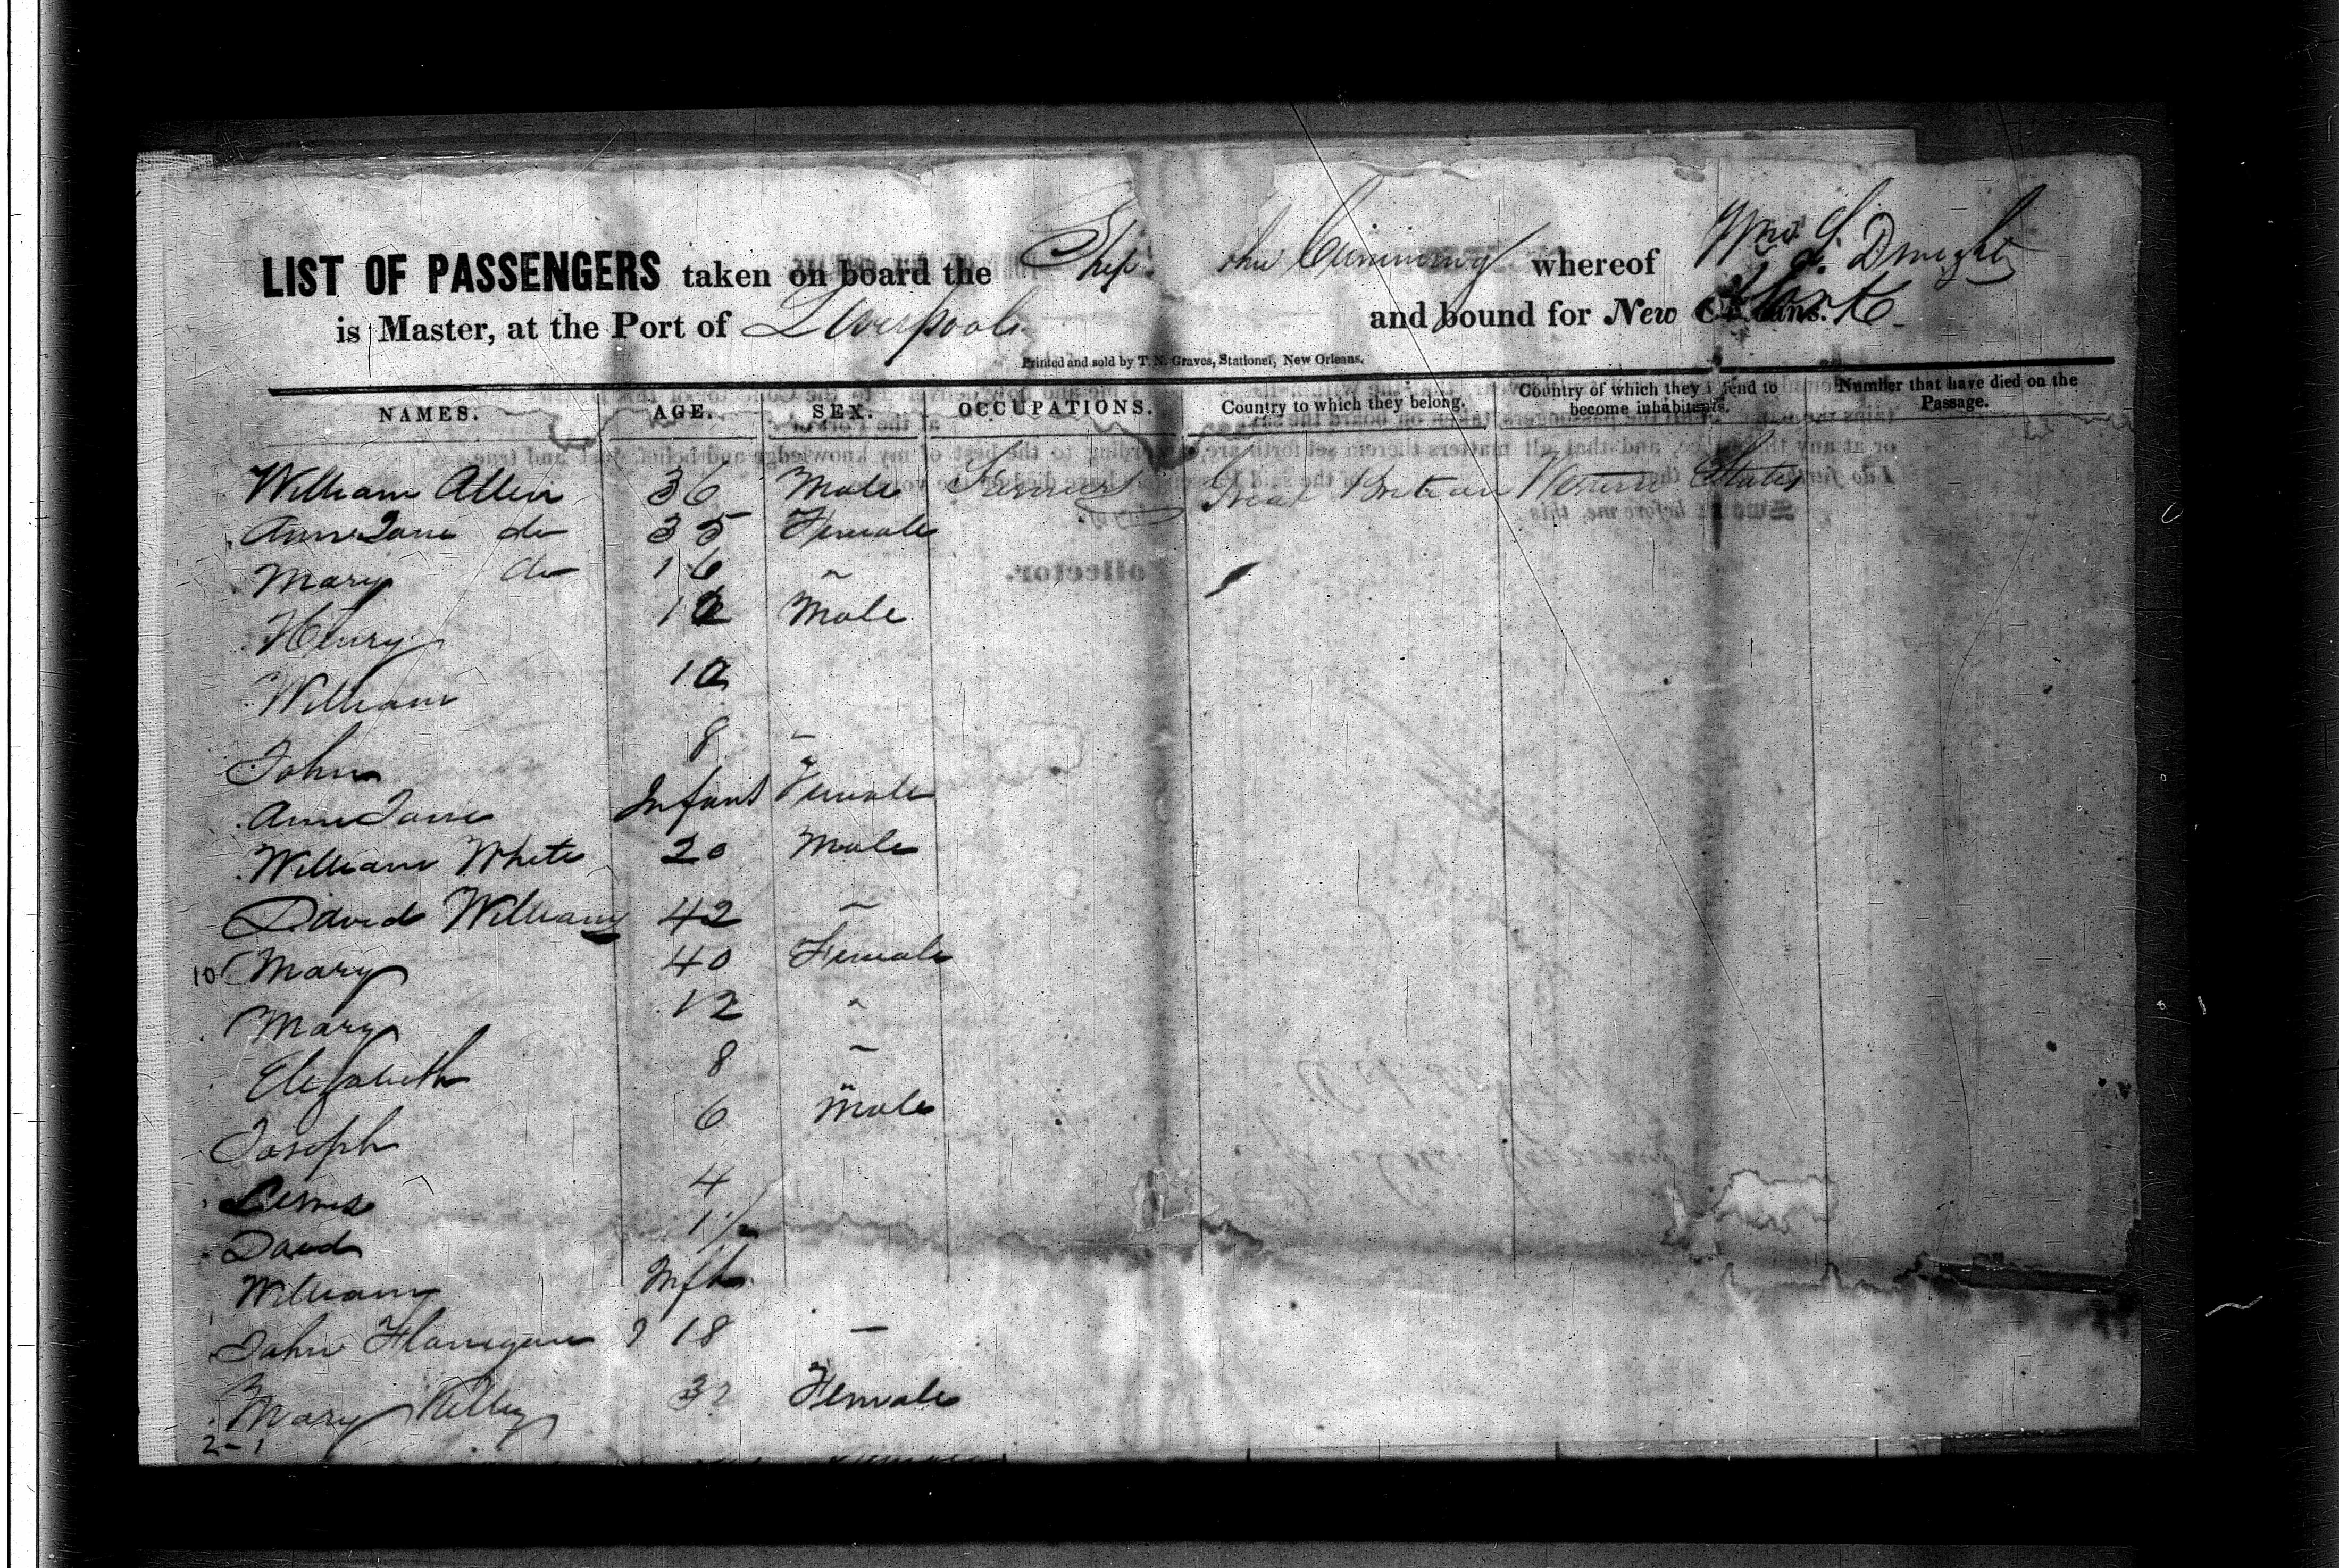 LIST OF PASSENGERS taken on board the Ship John Cumming whereof Wm. S. Dwight
is Master, at the Port of Liverpool and bound for New York
Printed and sold by T. N. Graves, Stationer, New Orleans.
NAMES. AGE. SEX. OCCUPATIONS. Country to which they belong. Country of which they intend to become inhabitants. Number that have died on the Passage.
William Allen 36 Male Farmer Great Britain Western States
Ann Jane do 35 Female
Mary do 16 "
Henry 12 Male
William 10
John 8 "
Ann Jane Infant Female
William White 20 Male
David Williams 42 "
10 Mary 40 Female
Mary 12 "
Elizabeth 8 "
Joseph 6 Male
Lewis 4
David 1 1/2
William Inft
John Flanigan 18 "
Mary Kelley 32 Female
2-1